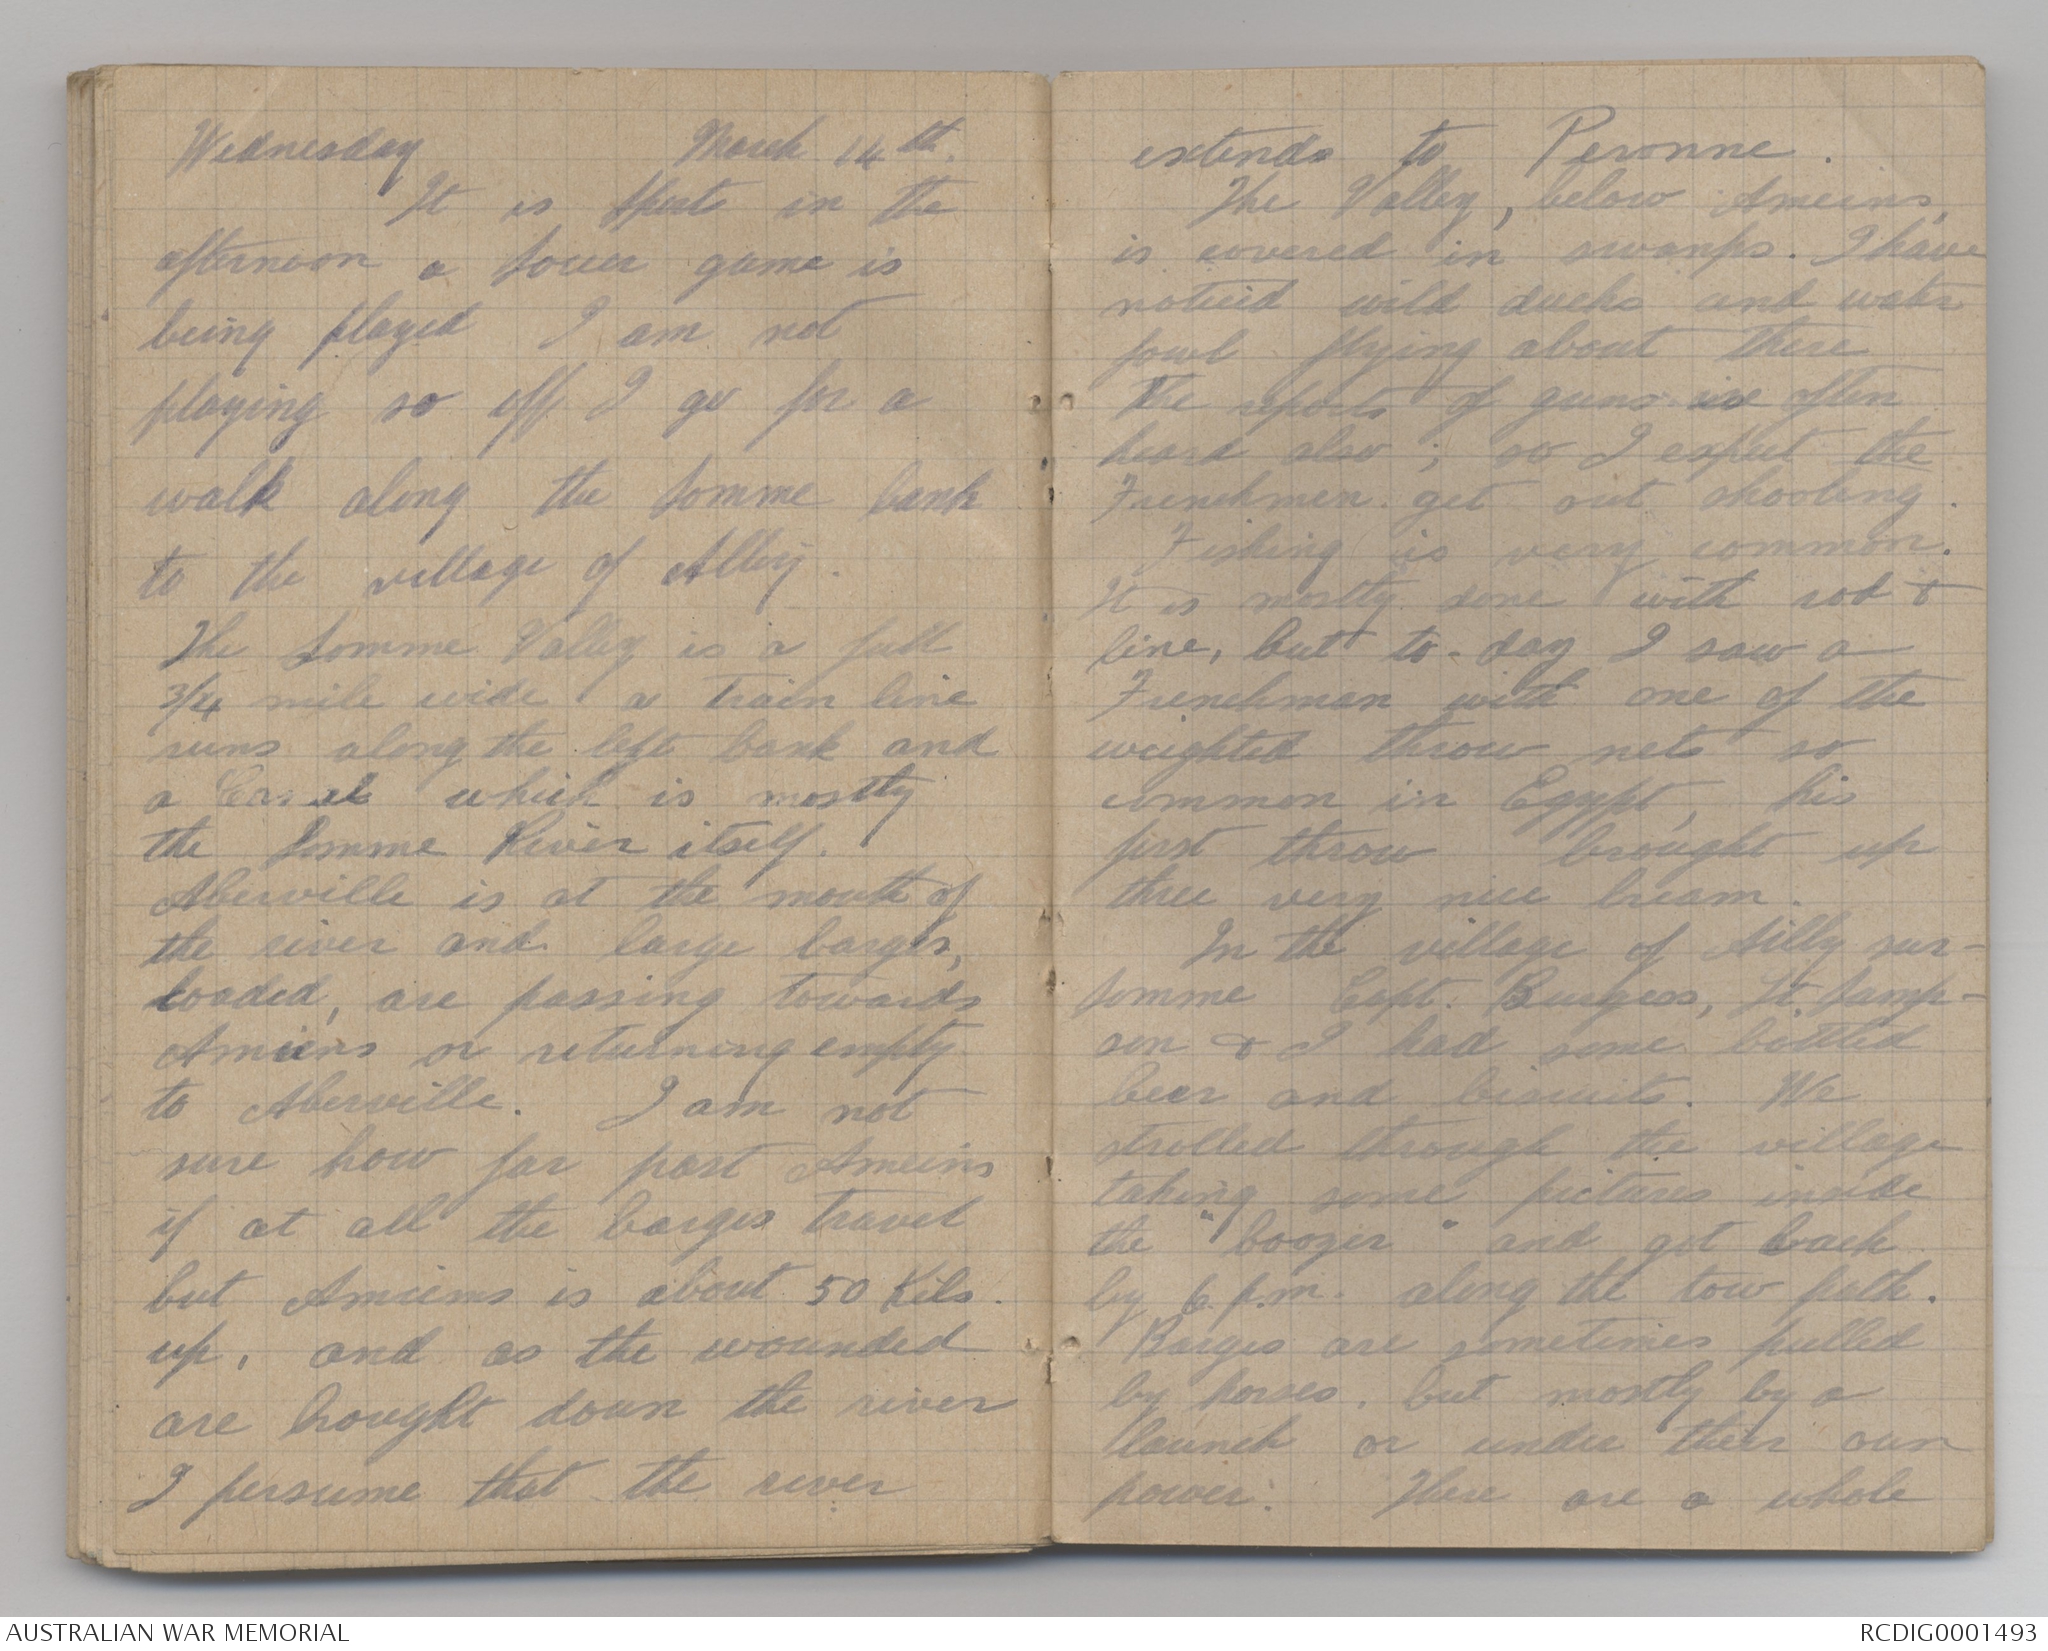 Wednesday March 14th.
It is Sports in the
afternoon a Socer game is
being played I am not
playing so off I go for a
walk along the Somme bank
to the village of Ailly.
The Somme Valley is a full
3/4 mile wide a Train line
runs along the left bank and
a Canal which is mostly
the Somme River itself.
Aberville is at the mouth of
the river and large barges,
loaded, are passing towards
Amiens or returning empty
to Aberville. I am not
sure how far past Ameins
if at all the barges travel
but Amiens is about 50 Kils.
up, and as the wounded
are brought down the river
I persume that the river
extends to Peronne.
The Valley, below Ameins,
is covered in swamps. I have
noticed wild ducks and water
fowl flying about there
The reports of guns are often
heard also; so I expect the
Frenchmen get out shooting.
Fishing is very common.
It is mostly done with rod &
line, but to-day I saw a
Frenchman with one of the
weighted throw nets so
common in Egypt, his
first throw brought up
three very nice bream.
In the village of Ailly sur-
Somme Capt. Burgess, Lt. Samp-
son & I had some bottled
beer and biscuits. We
strolled through the village
taking some pictures inside
the "boozer" and got back
by 6. p.m. along the tow path.
Barges are sometimes pulled
by horses, but mostly by a
launch or under their own
power. There are a whole
AUSTRALIAN WAR MEMORIAL
RCDIG0001493